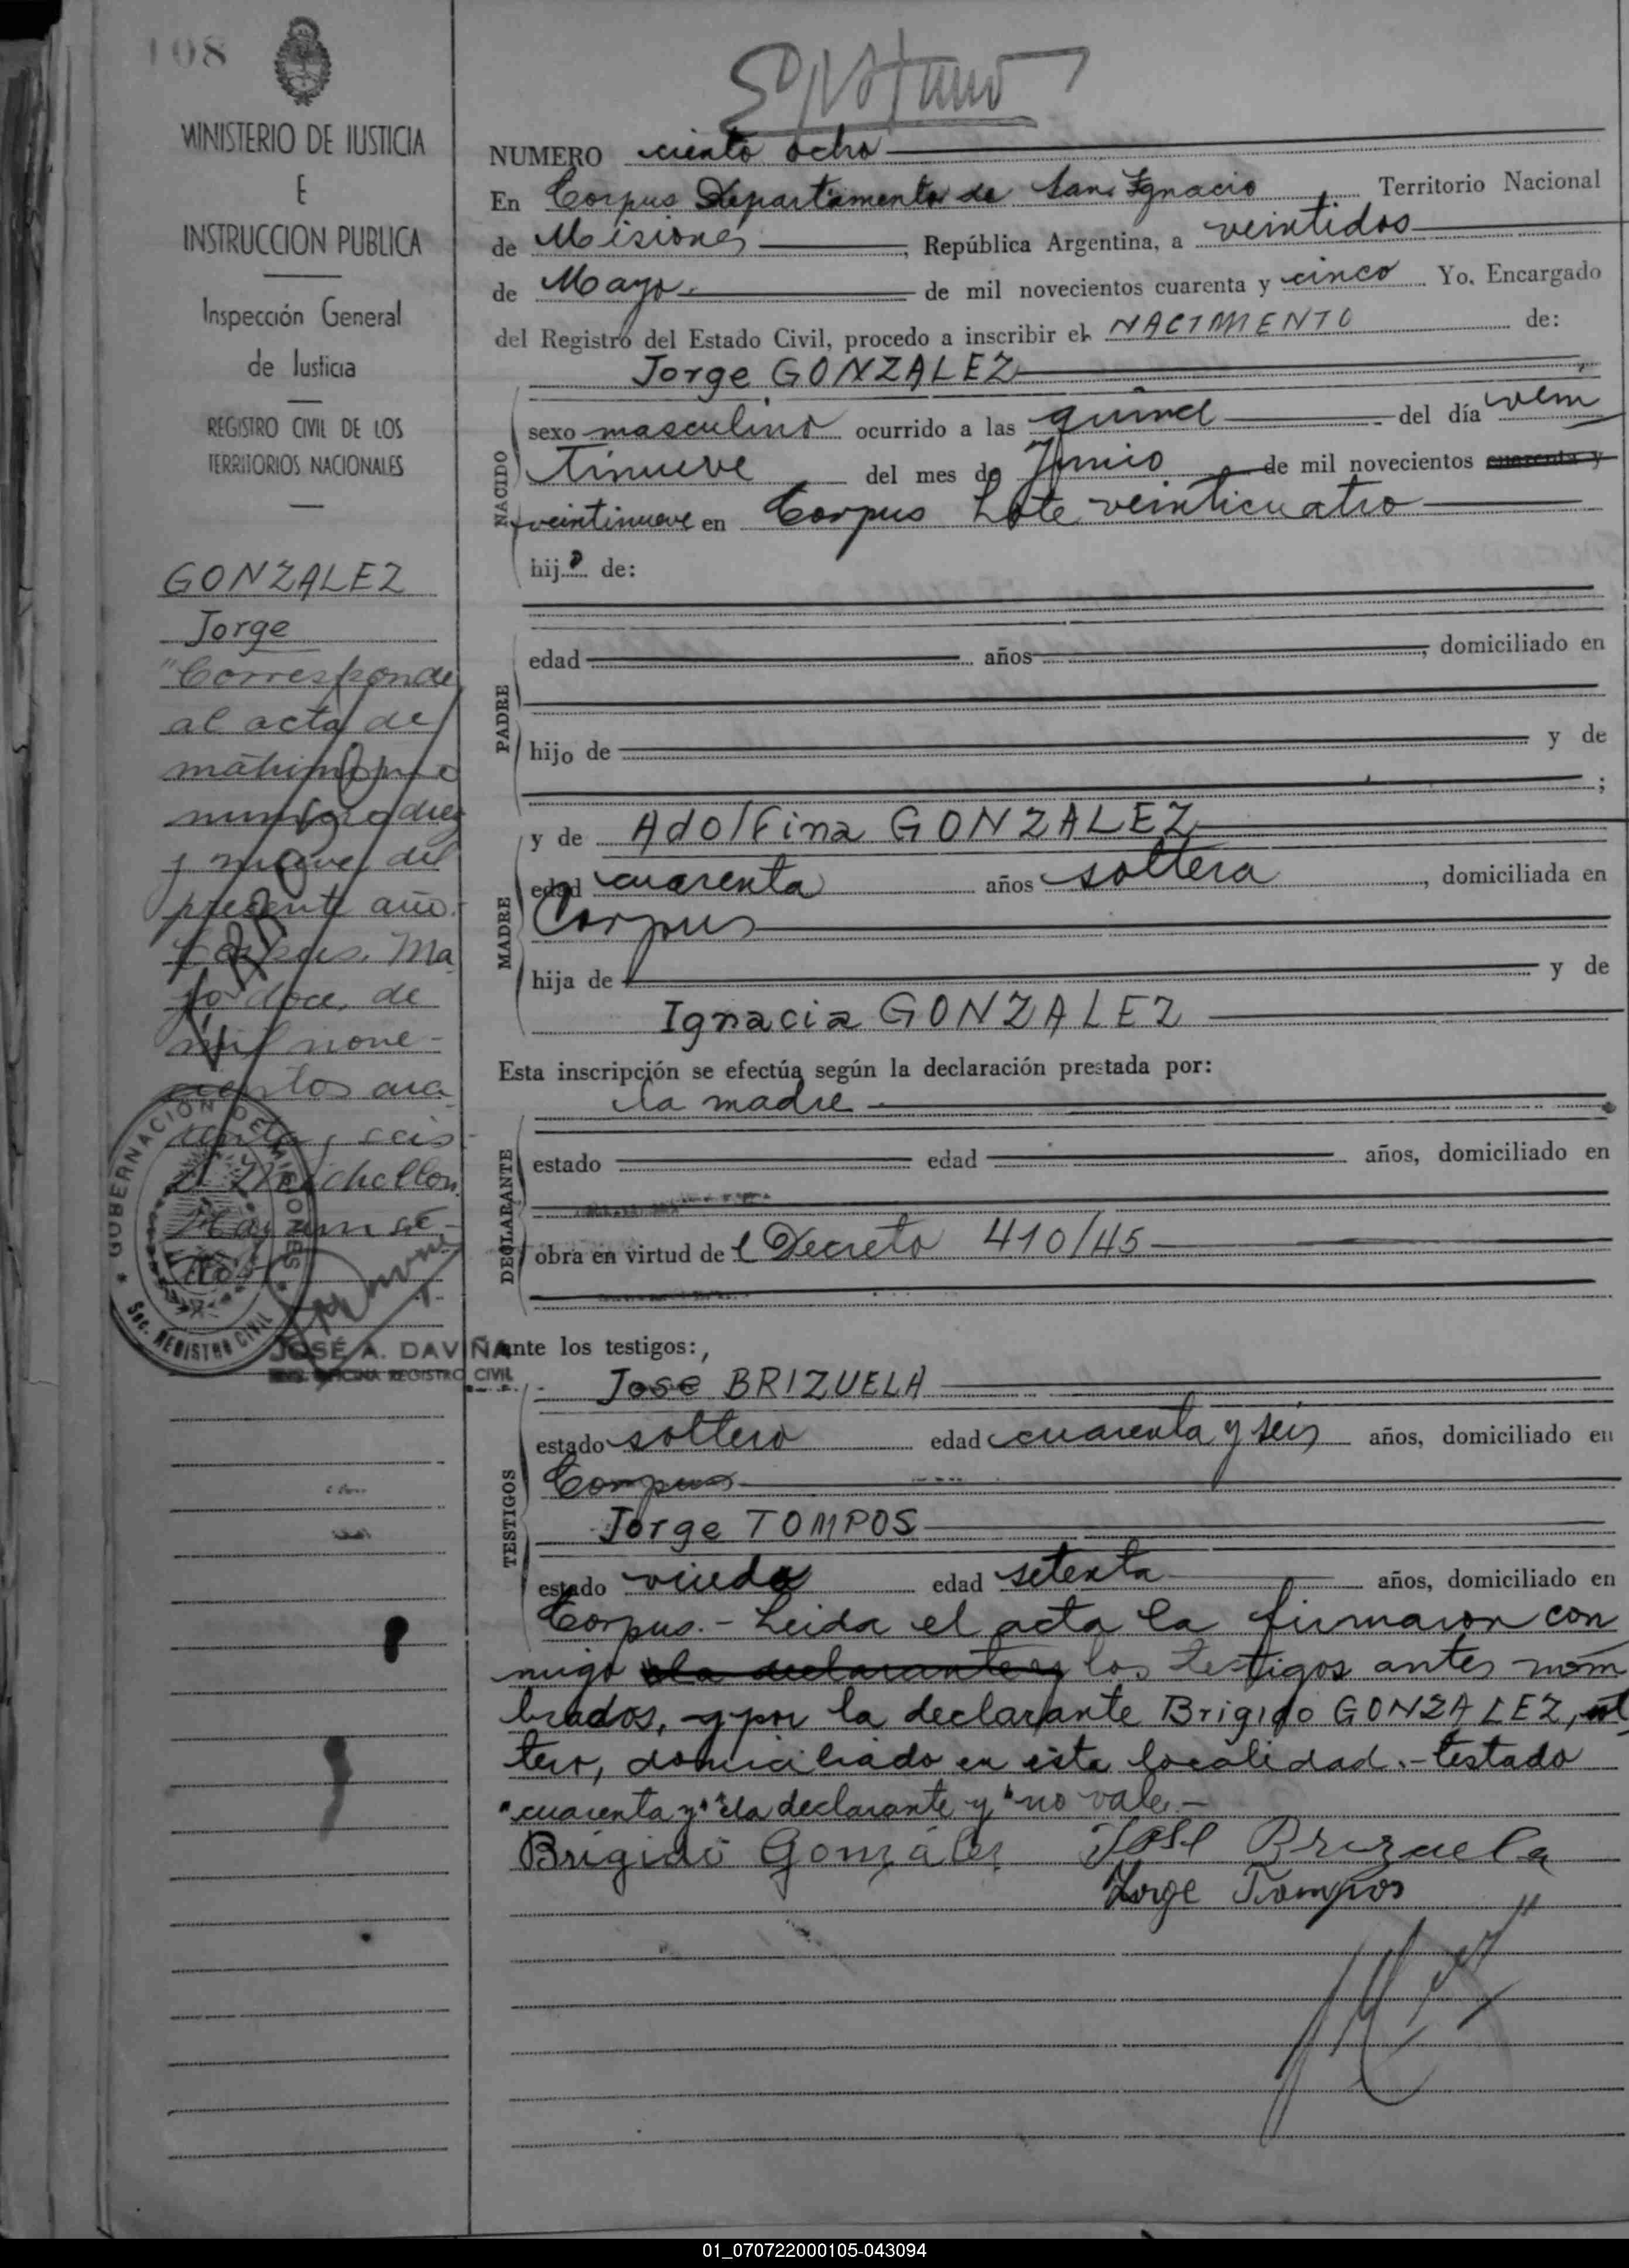 108
MINISTERIO DE JUSTICIA
E
INSTRUCCION PUBLICA
Inspección General
de Justicia
REGISTRO CIVIL DE LOS
TERRITORIOS NACIONALES
GONZALEZ
Jorge
"Corresponde
al acta de
matrimonio
numero diez
y nueve del
presente año.
Corpus. Ma
yo doce, de
mil nove-
cientos cua
renta y seis
Hay un se-
llo"
GOBERNACIÓN DE MISIONES
Sec. REGISTRO CIVIL
JOSÉ A. DAVIÑA
ENC. OFICINA REGISTRO CIVIL
NUMERO ciento ocho
En Corpus Departamento de San Ignacio Territorio Nacional
de Misiones, República Argentina, a veintidos
de Mayo de mil novecientos cuarenta y cinco Yo, Encargado
del Registro del Estado Civil, procedo a inscribir el NACIMIENTO de:
Jorge GONZALEZ
NACIDO
sexo masculino ocurrido a las quince del día vein
tinueve del mes de Junio de mil novecientos cuarenta y
veintinueve en Corpus Lote veinticuatro
hijo de:
PADRE
edad años, domiciliado en
hijo de y de
;
MADRE
y de Adolfina GONZALEZ
edad cuarenta años soltera, domiciliada en
Corpus
hija de y de
Ignacia GONZALEZ
Esta inscripción se efectúa según la declaración prestada por:
la madre
DECLARANTE
estado edad años, domiciliado en
obra en virtud del Decreto 410/45
ante los testigos:,
TESTIGOS
Jose BRIZUELA
estado soltero edad cuarenta y seis años, domiciliado en
Corpus
Jorge TOMPOS
estado viudo edad setenta años, domiciliado en
Corpus.- Leida el acta la firmaron con
migo la declarante y los testigos antes nom
brados, y por la declarante Brigido GONZALEZ, sol
tero, domiciliado en esta localidad.- testado
"cuarenta y" "la declarante y" no vale.-
Brígido González José Brizuela
Jorge Tompos
01_070722000105-043094